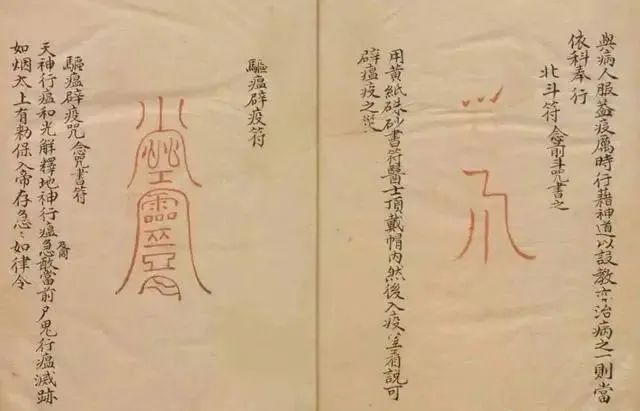 與病人服葢疫厲時行藉神道以設教亦治病之一則當
依科奉行
北斗符 念前斗咒書之
用黃紙硃砂書符醫士頂戴帽內然後入疫看說可
辟瘟疫之
驅瘟辟疫符
驅瘟辟疫咒 念咒書符
天神行瘟和光解釋地神行瘟急敢當前尸鬼行瘟滅跡
如烟太上有勅保入帝存急〻如律令